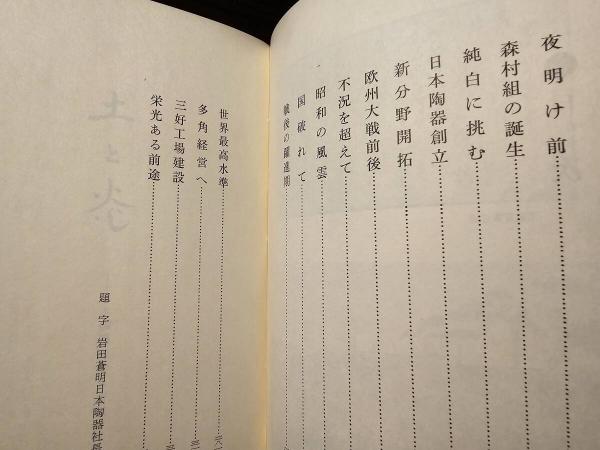 夜明け前
森村組の誕生
純白に挑む
日本陶器創立
新分野開拓
欧州大戦前後
不況を超えて
昭和の風雲
国破れて
戦後の躍進期
世界最高水準
多角経営へ
三好工場建設
栄光ある前途
題字 岩田蒼明日本陶器社長